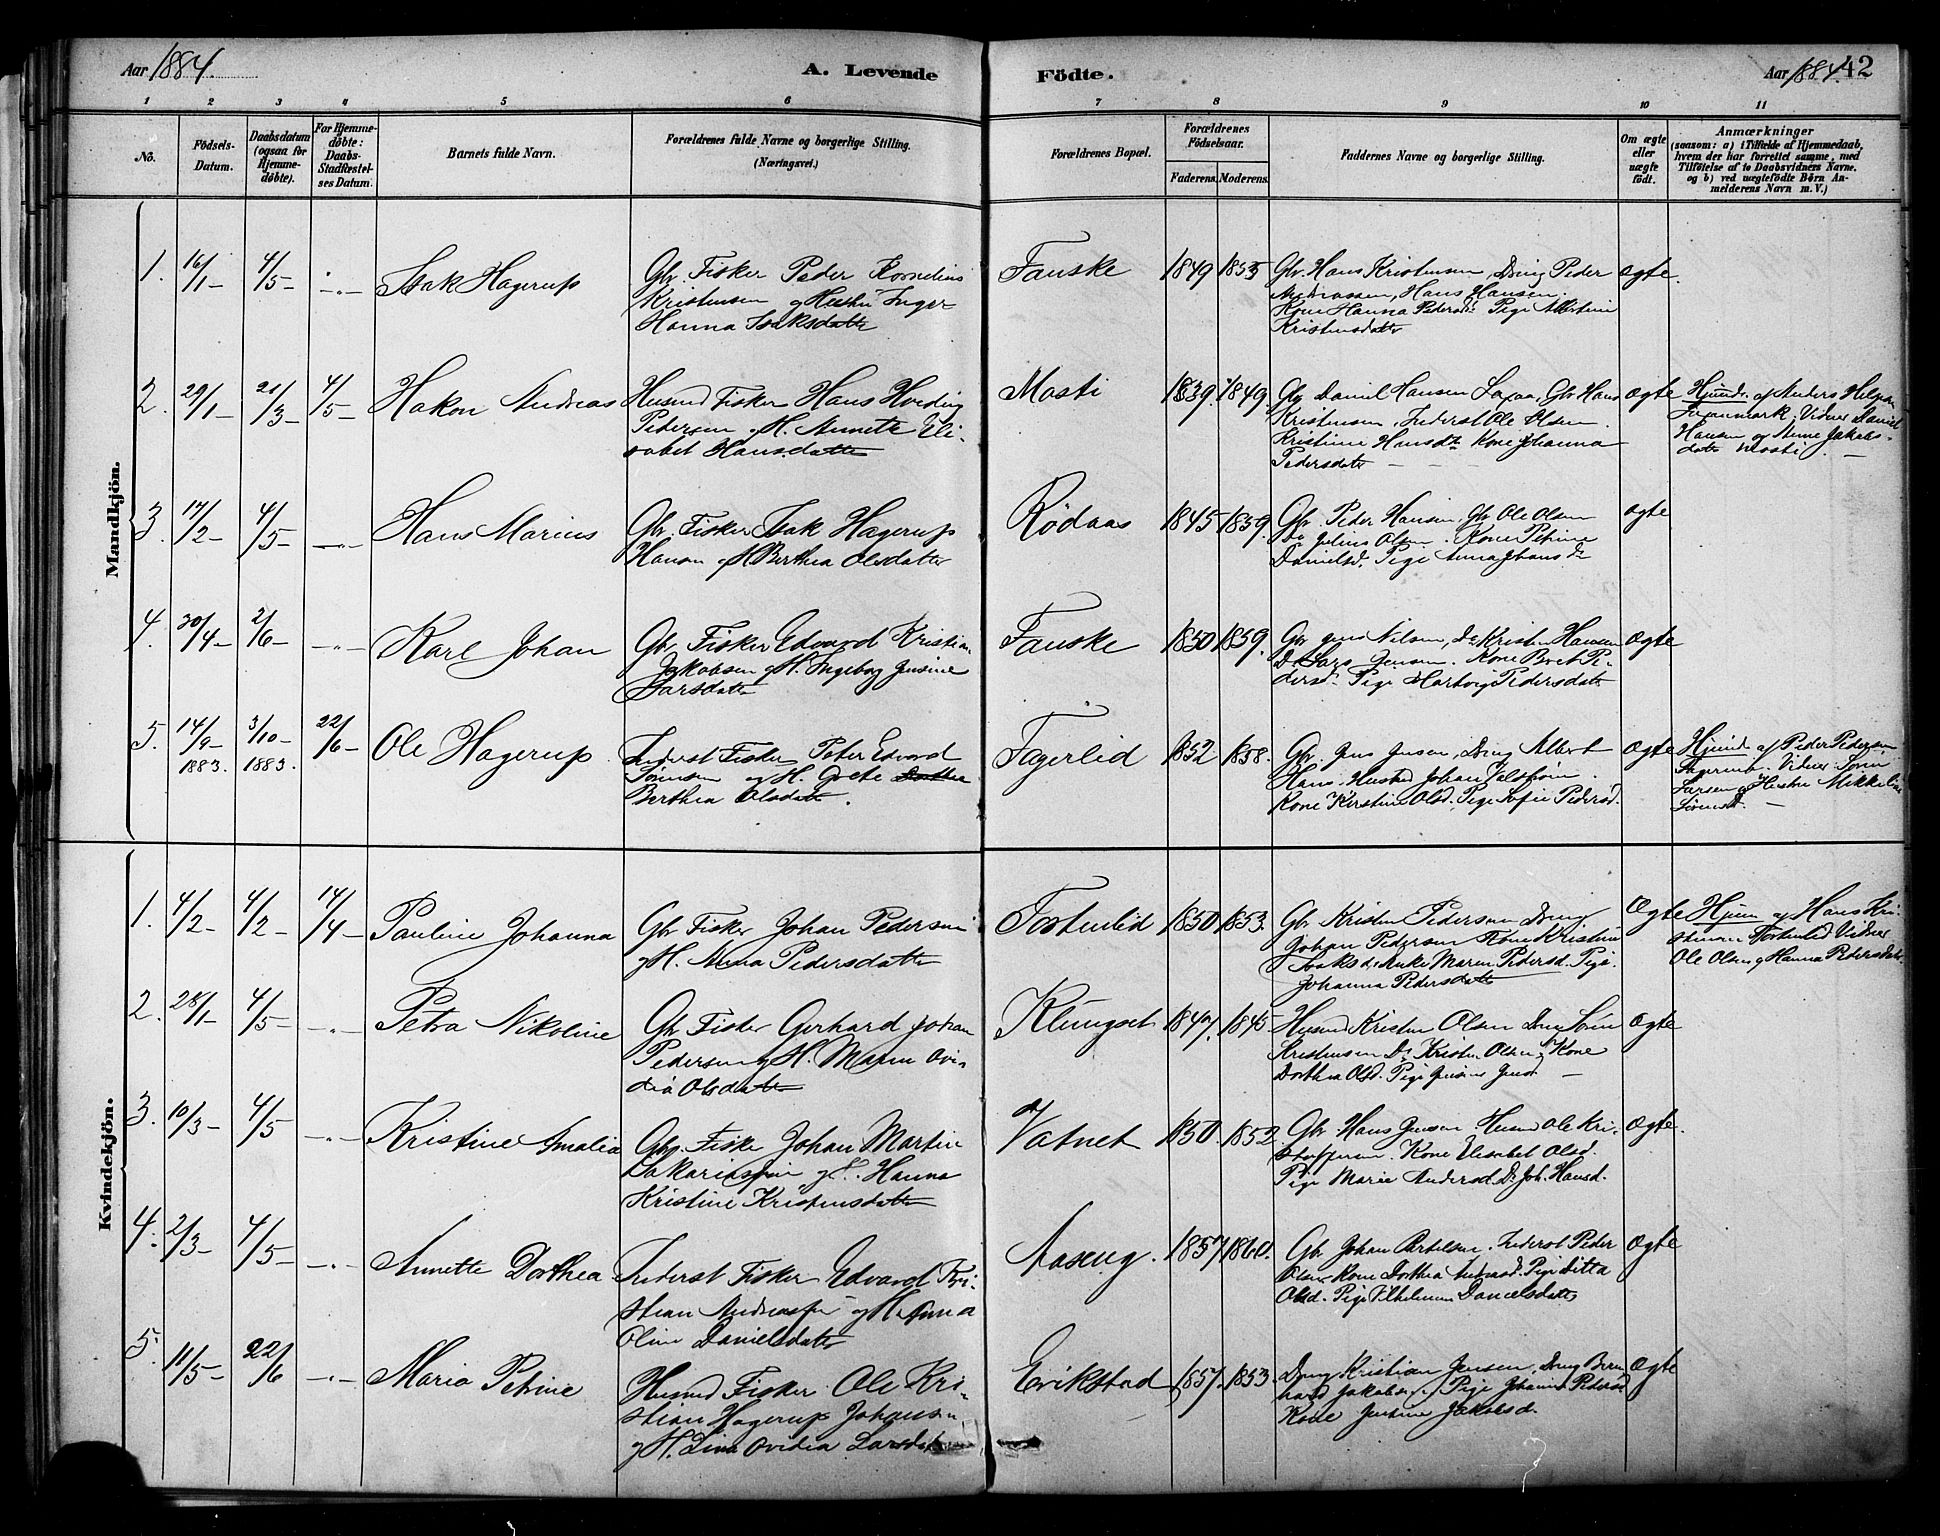 Aar 1884.
A. Levende
Födte.
Aar 1884.
42
1 2 3 4 5 6 7 8 9 10 11
No.
Fødsels-
Datum.
Daabsdatum
(ogsaa for
Hjemme-
døbte).
For Hjemme-
døbte:
Daabs-
Stadfæstel-
ses Datum.
Barnets fulde Navn.
Forældrenes fulde Navne og borgerlige Stilling.
(Næringsvei.)
Forældrenes Bopæl.
Forældrenes
Födselsaar.
Faderens. Moderens.
Faddernes Navne og borgerlige Stilling.
Om ægte
eller
uægte
født.
Anmærkninger
(saasom: a) i Tilfælde af Hjemmedaab,
hvem der har forrettet samme, med
Tilföielse af to Daabsvidners Navne,
og b) ved uægtefödte Börn An-
melderens Navn m. V.)
Mandkjön.
1. 16/1- 4/5- -"- Isak Hagerup
Gbr. Fisker Peder Kornelius
Kristensen og Hustru Inger
Hanna Isaksdatter
Fauske 1849 1853
Gbr. Hans Kristensen, Dreng Peder
Andreassen, Hans Hansen.
Kone Hanna Pedersd. Pige Albertine
Kristensdatter
ægte.
2. 29/1- 21/3- 4/5- Hakon Andreas
Husmd Fisker Hans Hveding
Pedersen og H. Annette Eli-
sabet Hansdatter
Mosti 1839. 1849.
Gbr Daniel Hansen, Gbr Hans
Kristensen, Inderst Ole Olsen.
Kristine Hansdr Kone Johanna
Pedersdatter
ægte
Hjmd. af Anders
Vidner Daniel
Hansen og Anne Jakobs-
datter Mosti.
3. 17/2- 4/5- -"- Hans Marius
Gbr. Fisker Isak Hagerup
Hansen og H Berthea Olsdatter
Rödaas 1845 1859.
Gbr. Peder Hansen, Gbr Ole Olsen
Do Julius Olsen. Kone Petrine
Danielsd. Pige Anna Johansdr
ægte
4. 30/4- 2/6- -"- Karl Johan
Gbr. Fisker Edvard Kristian
Jakobsen og H. Ingeborg Jensine
Larsdatter
Fauske 1850 1859.
Gbr Jens Nilsen, Do Kristen Hansen
Do Lars Jensen. Kone Beret Pe-
dersd. Pige Hartvig Pedersdatter
ægte
5. 14/9- 1883. 3/10- 1883. 22/6- Ole Hagerup.
Inderst Fisker Peter Edvard
Sörensen og H. Grete
Berthea Olsdatter.
Fagerlid 1852 1858.
Gbr. Jens Jensen, Dreng Albert
Hans. Husmd Johan
Kone Kerstine Olsd. Pige Sofie Pedersd.
ægte
Hjmd af Peder Pedersen
Vidner Sören
Larsen og Hustru Mikkeline
Sörensd.
Kvindekjön.
1. 4/2- 4/2- 14/4- Pauline Johanna
Gbr Fisker Johan Pedersen
og H. Anna Pedersdatter
Tortenlid 1850 1853.
Gbr. Kristen Pedersen Dreng
Johan Pedersen Kone Kristine
Isaksd. Enke Maren Pedersd. Pige
Johanna Pedersdatter
Ægte
Hjem af Hans Kri-
stensen Tortenlid Vidner
Ole Olsen og Hanna Pedersdatter.
2. 28/1- 4/5- -"- Petra Nikoline
Gbr Fisker Gerhard Johan
Pedersen og H. Maren Ovi-
dia Olsdatter
Klungset 1847. 1845
Husmd Kristen Olsen Dreng Sören
Kristensen Do Kristen Olsen, Kone
Dorthea Olsd. Pige Jensine Jensd.
Ægte
3. 10/3- 4/5- -"- Kristine Amalia
Gbr. Fisker Johan Martin
Sakariassen og H. Hanna
Kristine Kristensdatter
Vatnet 1850. 1852.
Gbr. Hans Jensen Husmd Ole Kri-
stoffersen. Kone Elisabet Olsd.
Pige Marie Andersd Do Joh. Hansd.
Ægte.
4. 2/3- 4/5- -"- Annette Dorthea
Inderst Fisker Edvard Kri-
stian Andreassen og H. Anna
Oline Danielsdatter
Aaseng. 1857 1860.
Gbr Johan Bertelsen. Inderst Peder
Olsen Kone Dorthea Andersd. Pige Ditta
Olsd. Pige Vilhelmine Danielsdatter
Ægte
5. 11/5- 22/6 -"- Maria Petrine
Husmd Fisker Ole Kri-
stian Hagerup Johansen
og H. Lina Ovidia Larsdatter
Erikstad 1857. 1853.
Dreng Kristian Jensen, Dreng Bern
hard Jakobsen, Pige Johanna Pedersd
Kone Justine Jakobsd.
Ægte